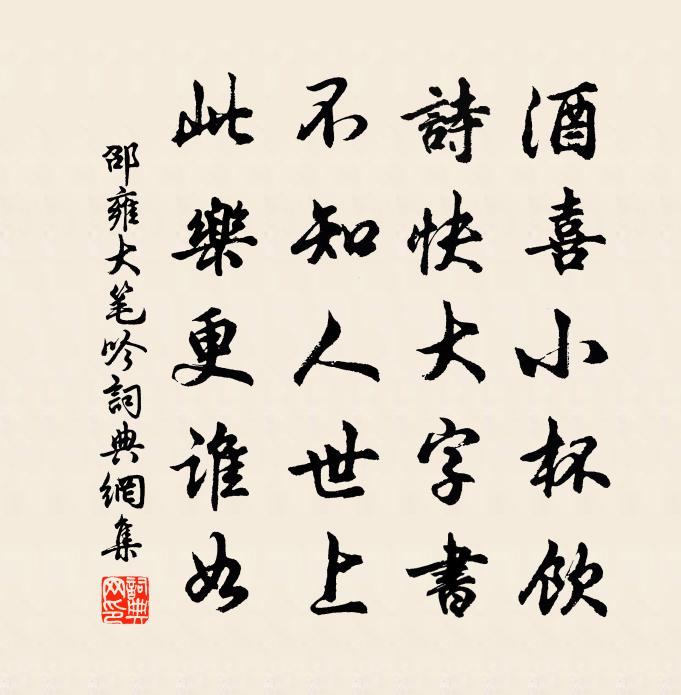 酒喜小杯飲
詩快大字書
不知人世上
此樂更誰如
邵雍大笔吟詞典網集
詞典网印